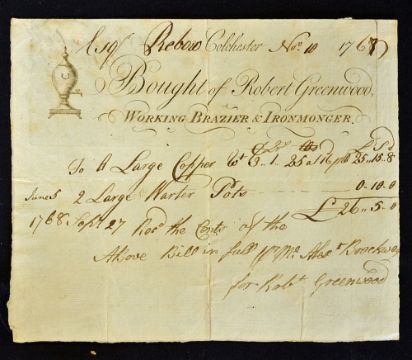 Esqr Rebow Colchester Nov. 10 1767
Bought of Robert Greenwood,
WORKING BRAZIER & IRONMONGER.
To A Large Copper Wt 3 - 1 . 25 at 16 pr lb 25 .. 15 .. 8
June 5 2 Large Warter Pots 0 .. 10 .. 0
£ 26 .. 5 .. 0
1768 Sept 27 Recd the Conts of the
Above Bill in full pr Me
for Robt Greenwood